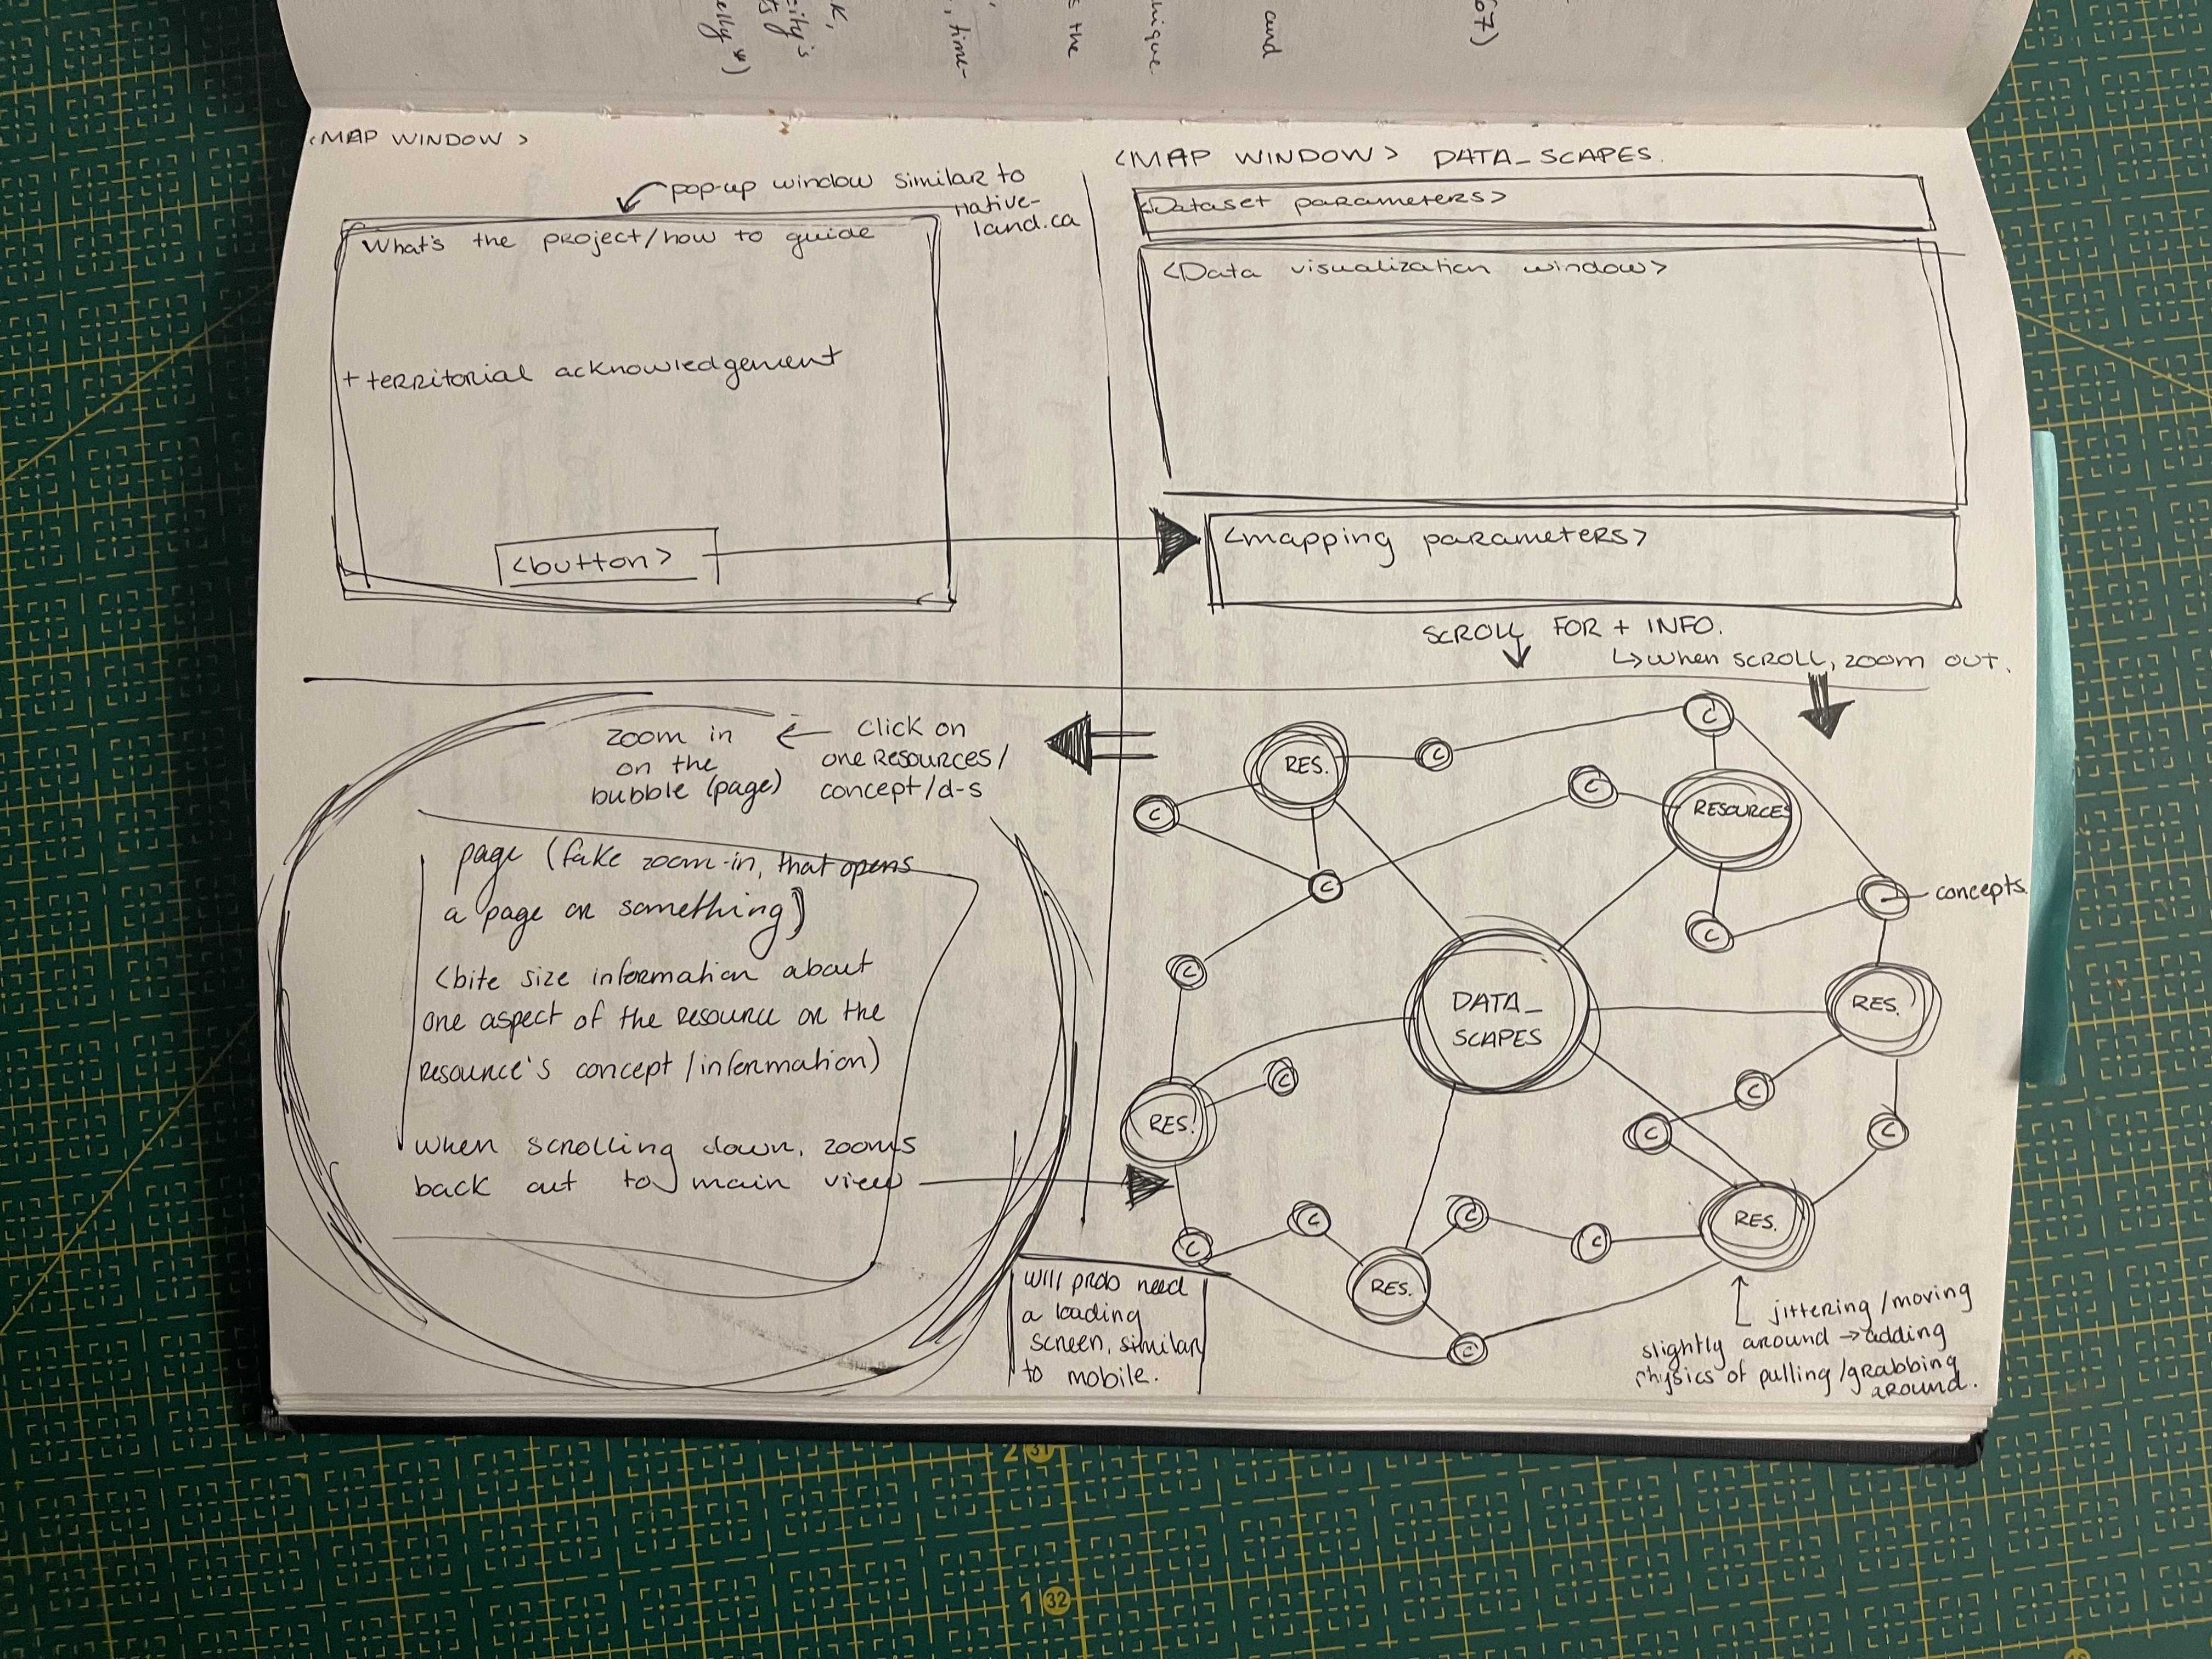 67)
and
nique.
s the
, time-
k,
city's
elly")
<MAP WINDOW>
pop-up window similar to
native-
land.ca
What's the project/how to guide
+ territorial acknowledgement
<button>
<MAP WINDOW> DATA_SCAPES.
<Dataset parameters>
<Data visualization window>
<mapping parameters>
SCROLL FOR + INFO.
↳ when scroll, zoom out.
zoom in
on the
bubble (page)
← click on
one resources/
concept/d-s
page (fake zoom-in, that opens
a page or something)
<bite size information about
one aspect of the resource or the
resource's concept/information)
when scrolling down, zooms
back out to main view
will prob need
a loading
screen, similar
to mobile.
C
RES.
C
C
C
RESOURCES
C
C
concepts.
C
C
DATA_
SCAPES
RES.
C
C
RES.
C
C
C
C
C
C
RES.
RES.
C
jittering/moving
slightly around → adding
physics of pulling/grabbing
around.
2
31
1
32